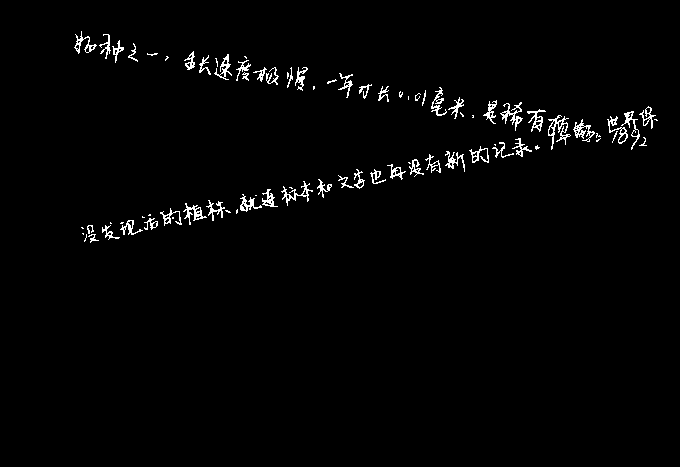 物种之一，生长速度极慢，一年才长0.01毫米，是稀有 世界保
没发现活的植株，就连标本和文字也再没有新的记录。1892